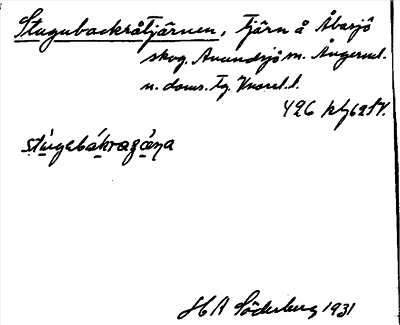 Stugubackråtjärnen, Tjärn å Åbosjö
skog. Anundsjö sn. Ångerml.
n. doms. Tg. Vnorrl. l.
426
stugebákragána
H A Söderberg 1931